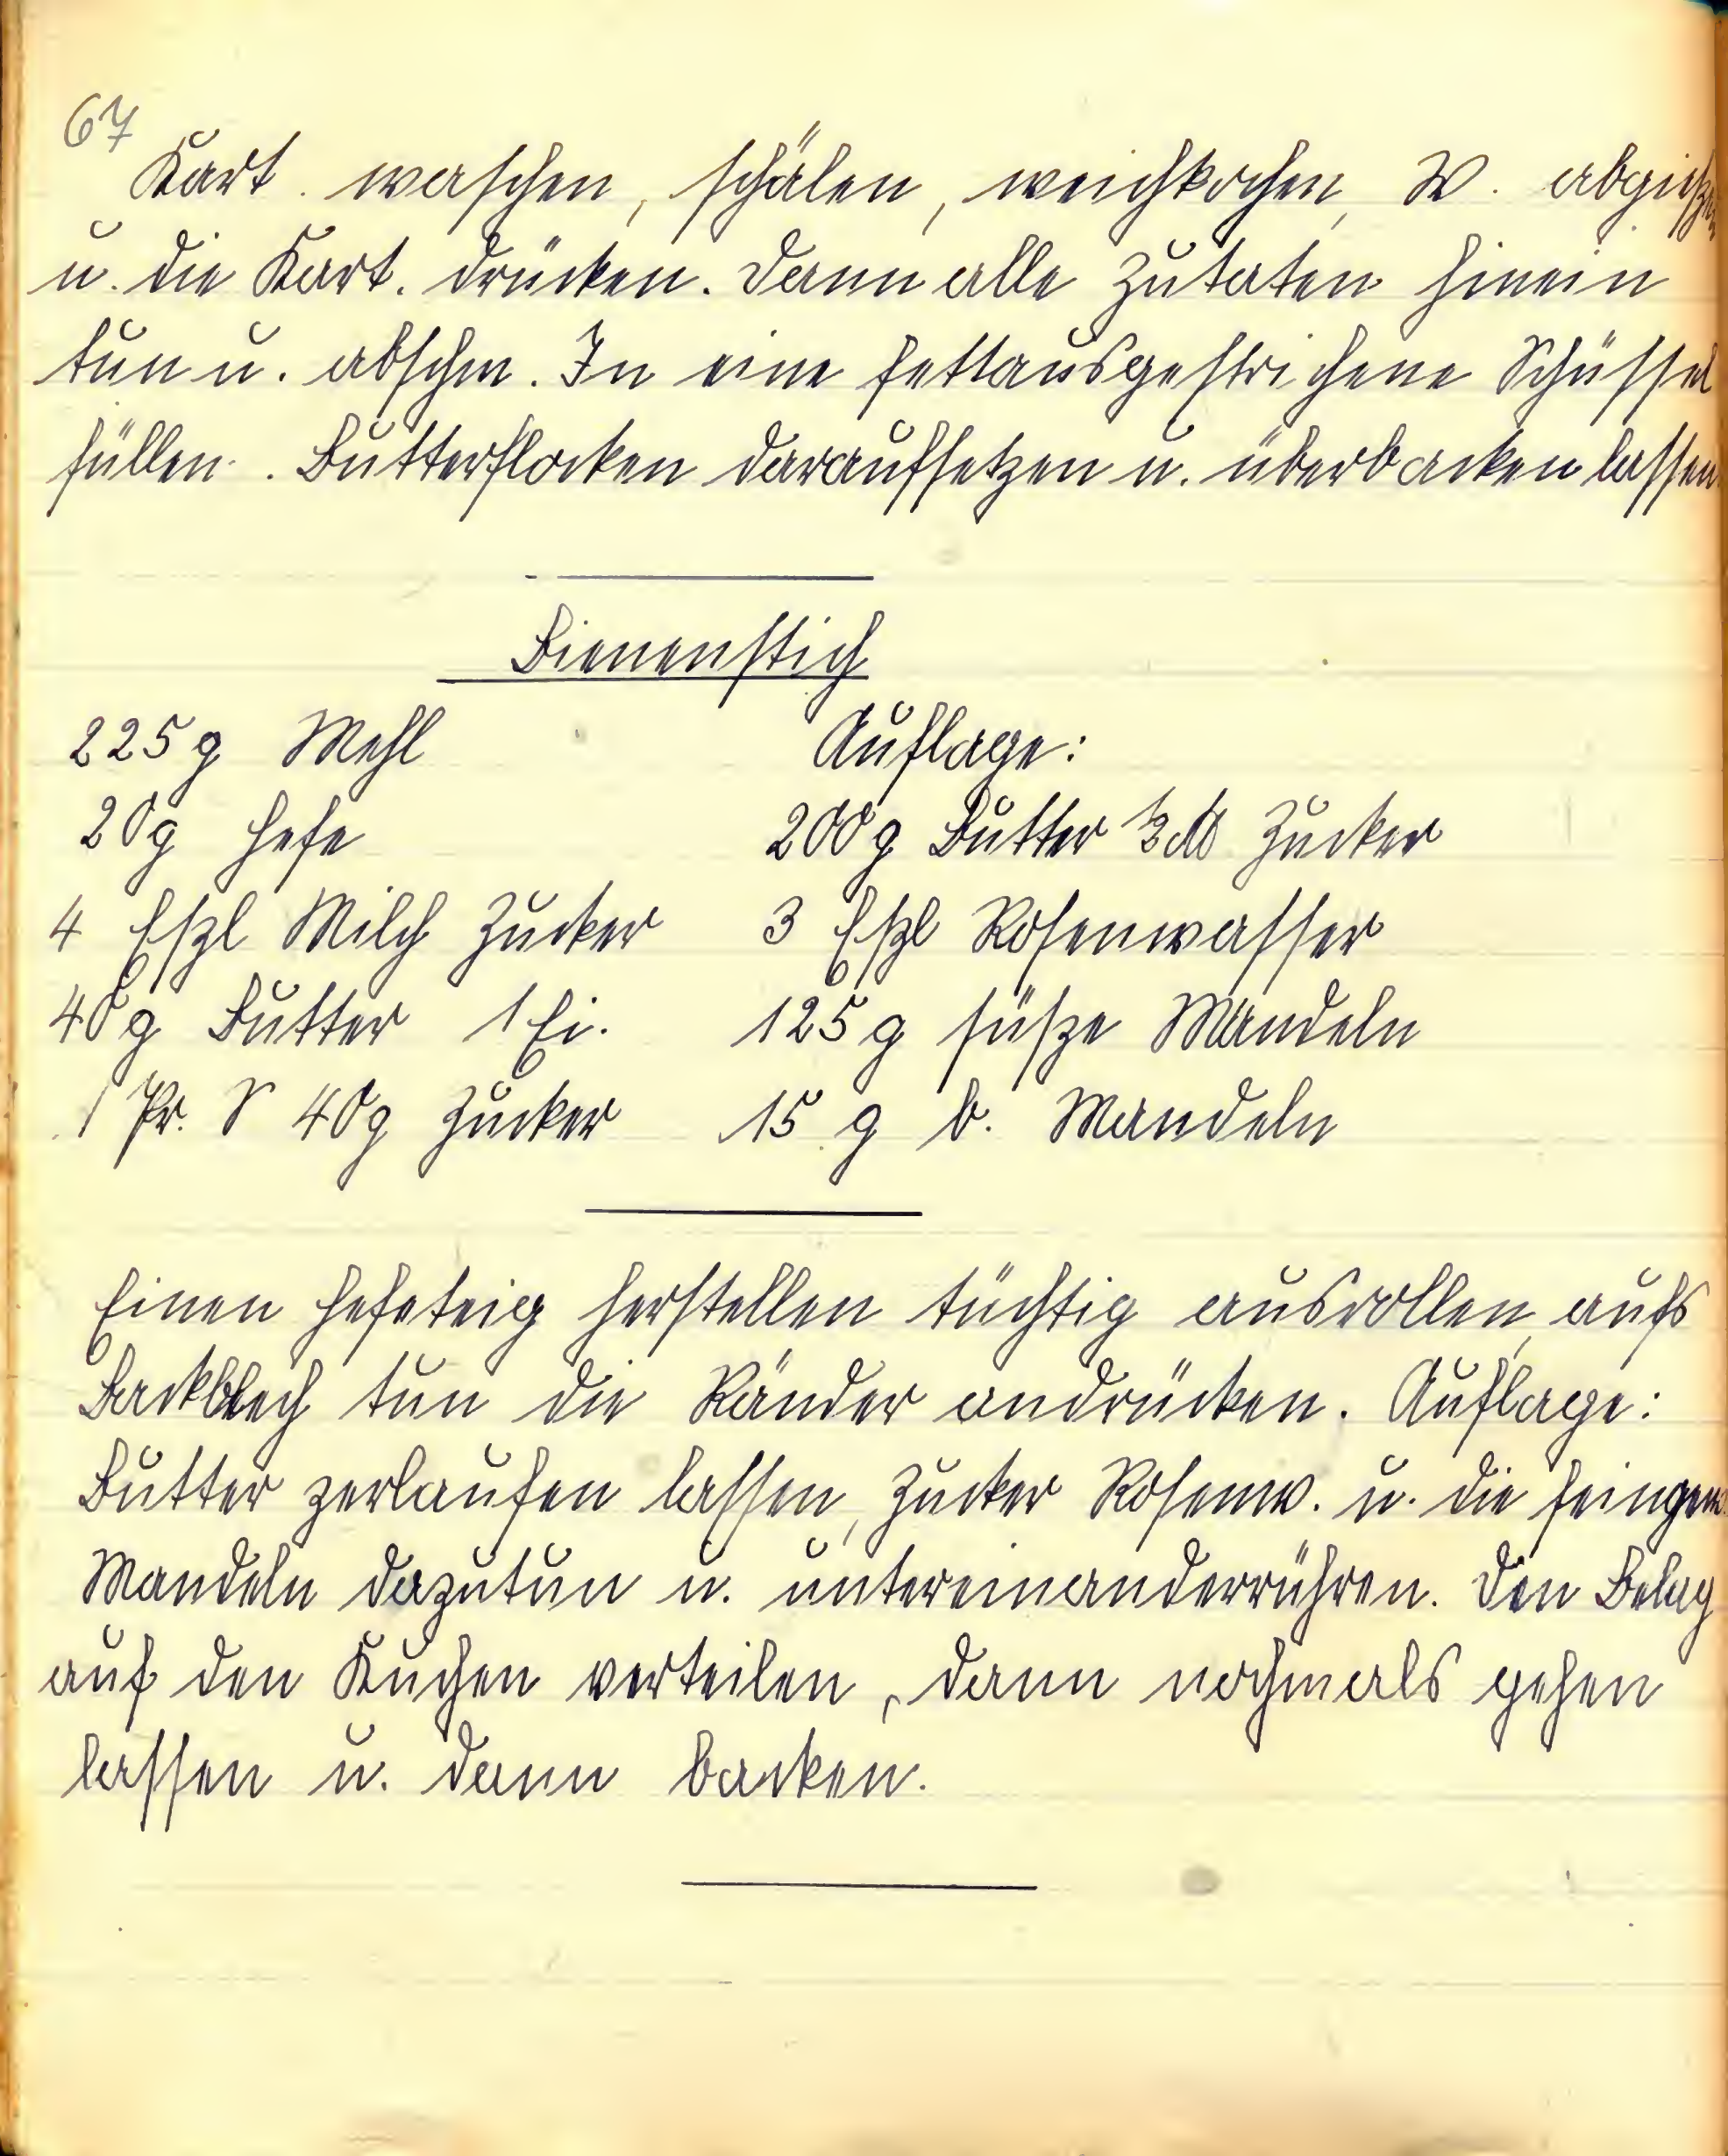 67
Kart. waschen, schälen, weichkochen, W. abgießen
u. die Kart. drücken. Dann alle Zutaten hinein
tun u. abschm. In eine fettausgestrichene Schüssel
füllen. Butterflocken daraufsetzen u. überbacken lassen
Bienenstich
225 g Mehl
20 g Hefe
4 Eßl Milch Zucker
40 g Butter 1 Ei.
1 Pr. S 40 g Zucker
Auflage:
200 g Butter ½ ℔ Zucker
3 Eßl Rosenwasser
125 g süße Mandeln
15 g b. Mandeln
Einen Hefeteig herstellen tüchtig ausrollen, aufs
Backblech tun die Ränder andrücken. Auflage:
Butter zerlaufen lassen, Zucker Rosenw. u. die feingem.
Mandeln dazutun u. untereinanderrühren. Den Belag
auf den Kuchen verteilen, dann nochmals gehen
lassen u. dann backen.